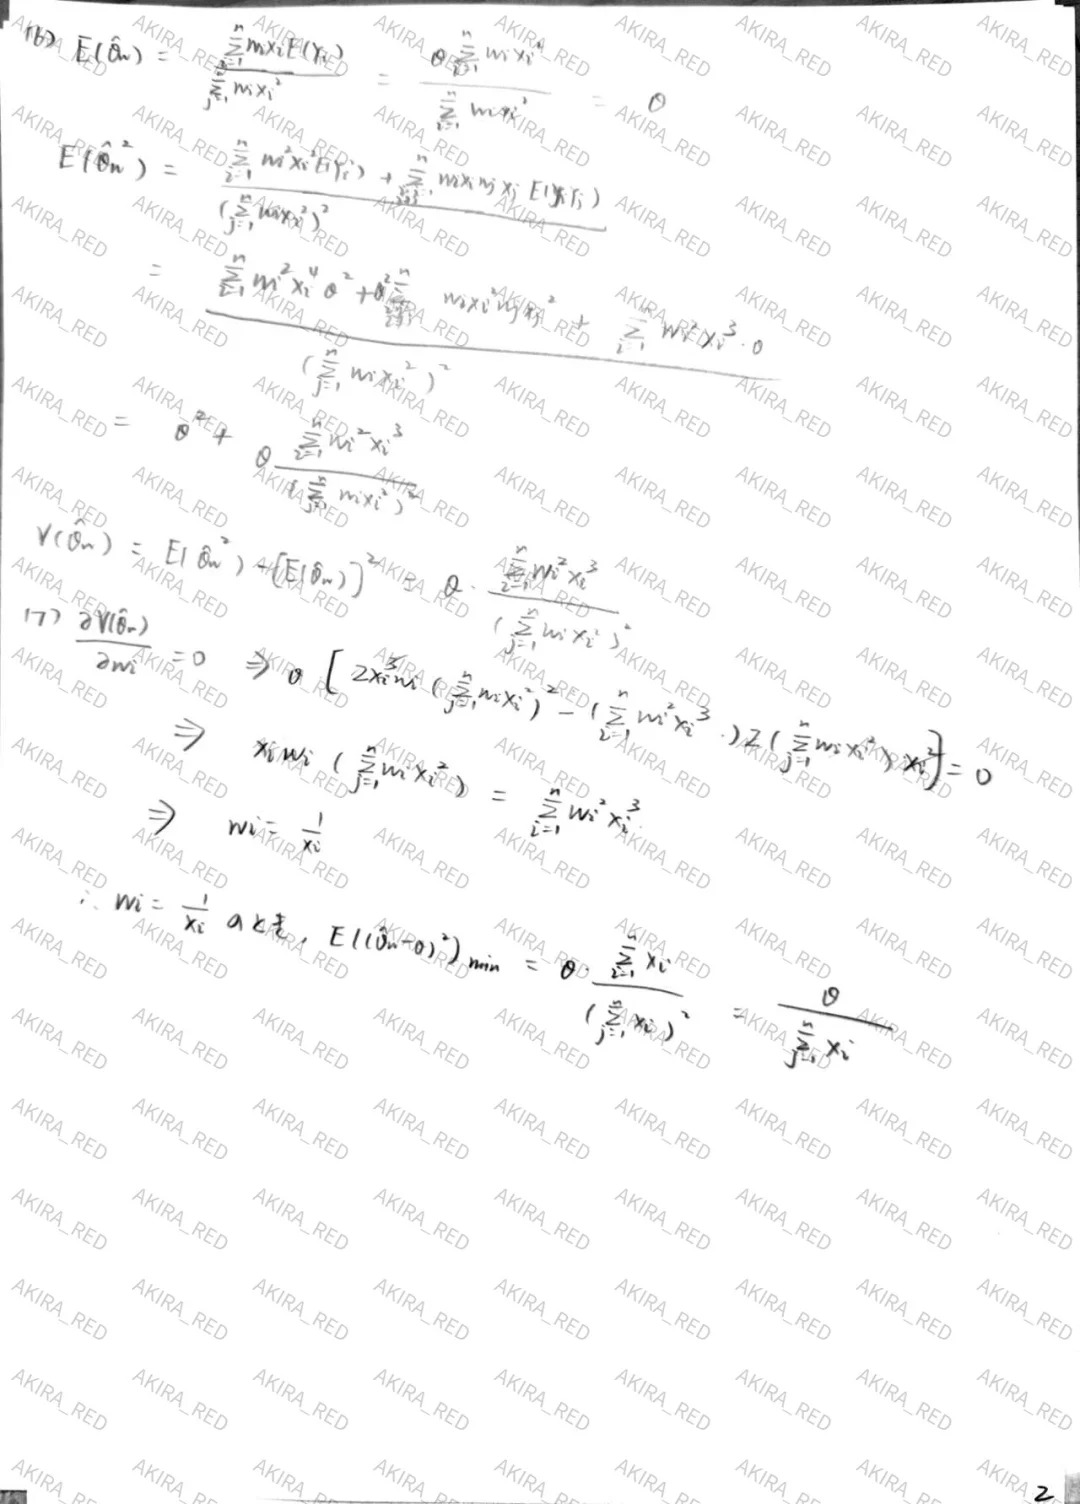 (6) E(θ̂w) = \frac{\sum_{i=1}^{n} wixiE(Yi)}{\sum_{j=1}^{n} wixi^2} = \frac{θ\sum_{i=1}^{n} wixi^2}{\sum_{i=1}^{n} wixi^2} = θ
E(θ̂w^2) = \frac{\sum_{i=1}^{n} wi^2xi^2E(Yi^2) + \sum wixiwjxj E(YiYj)}{(\sum_{j=1}^{n} wixi^2)^2}
= \frac{\sum_{i=1}^{n} wi^2xi^4θ^2 + θ^2\sum wixi^2wjxj^2 + \sum_{i=1}^{n} wi^2xi^3·θ}{(\sum_{j=1}^{n} wixi^2)^2}
= θ^2 + θ\frac{\sum_{i=1}^{n} wi^2xi^3}{(\sum_{j=1}^{n} wixi^2)^2}
V(θ̂w) = E(θ̂w^2) - [E(θ̂w)]^2 = θ·\frac{\sum_{i=1}^{n} wi^2xi^3}{(\sum_{j=1}^{n} wixi^2)^2}
(7) \frac{∂V(θ̂w)}{∂wi} = 0 ⇒ θ[2xi^3wi(\sum_{j=1}^{n} wixi^2)^2 - (\sum_{i=1}^{n} wi^2xi^3)2(\sum_{j=1}^{n} wixi^2)xi^2] = 0
⇒ xiwi(\sum_{j=1}^{n} wixi^2) = \sum_{i=1}^{n} wi^2xi^3
⇒ wi = \frac{1}{xi}
∴ wi = \frac{1}{xi} のとき, E((θ̂w-θ)^2)min = θ·\frac{\sum_{i=1}^{n} xi}{(\sum_{j=1}^{n} xi)^2} = \frac{θ}{\sum_{j=1}^{n} xi}
2
AKIRA_RED